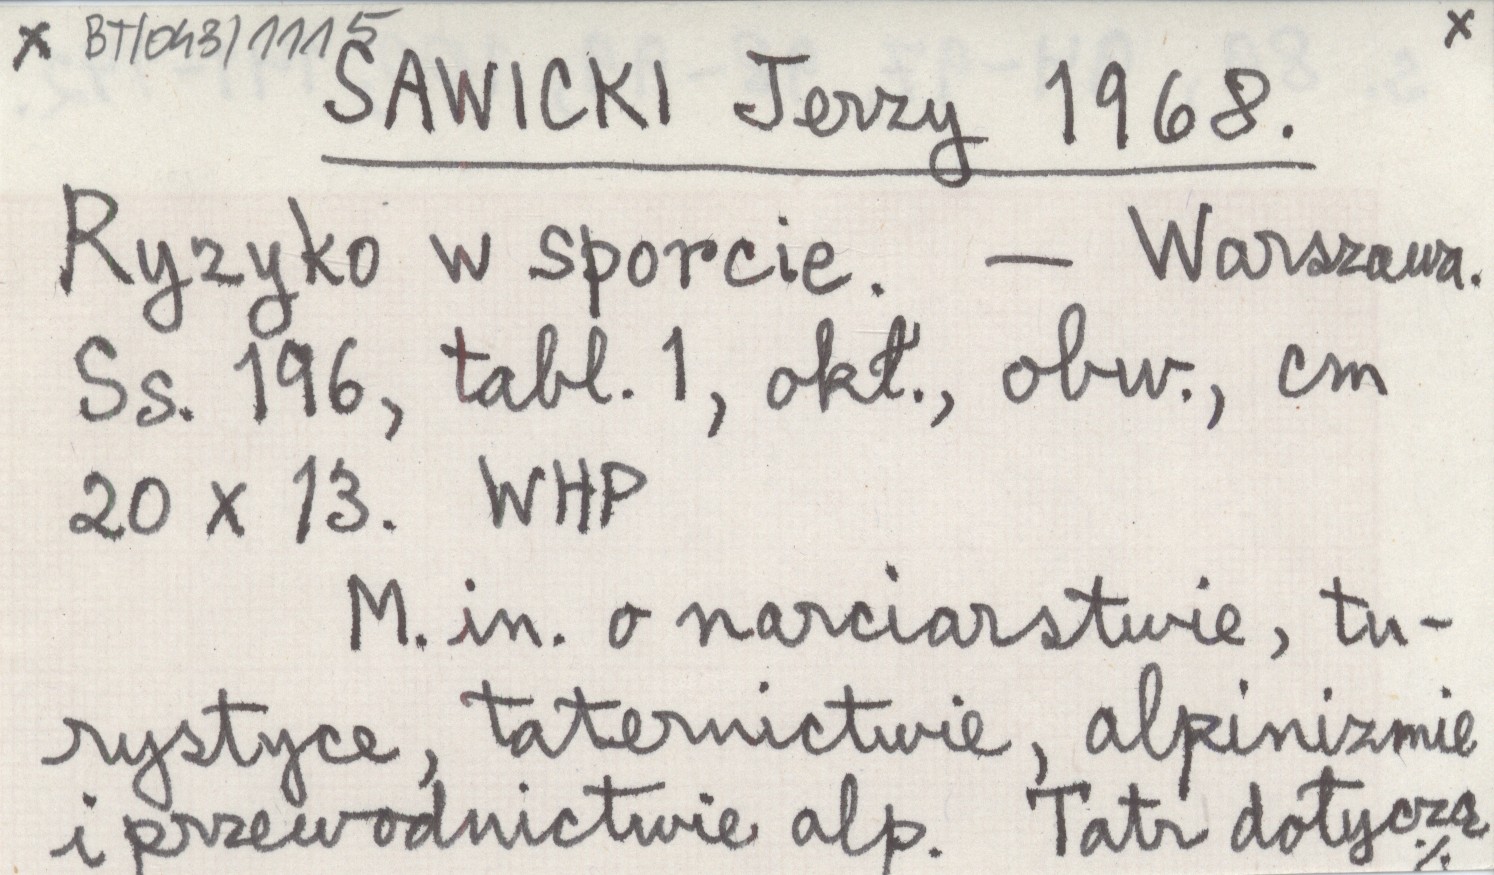 x BT/043/1115 x
SAWICKI Jerzy 1968.
Ryzyko w sporcie. — Warszawa.
Ss. 196, tabl. 1, okł., obw., cm
20 x 13. WHP
M. in. o narciarstwie, tu-
rystyce, taternictwie, alpinizmie
i przewodnictwie alp. Tatr dotyczą
./.